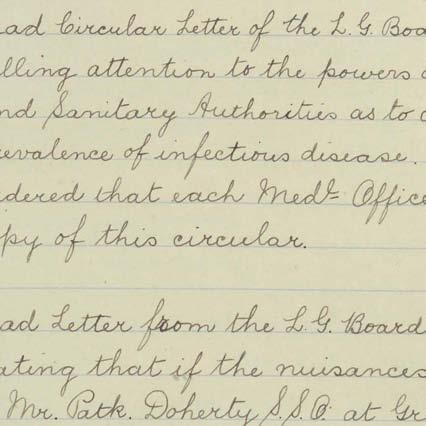 ad Circular Letter of the L. G. Boa
lling attention to the powers
nd Sanitary Authorities as to
revalence of infectious disease.
dered that each Medl. Office
py of this circular.
ad Letter from the L. G. Board
ating that if the nuisances
Mr. Patk. Doherty S.S.O. at Gr